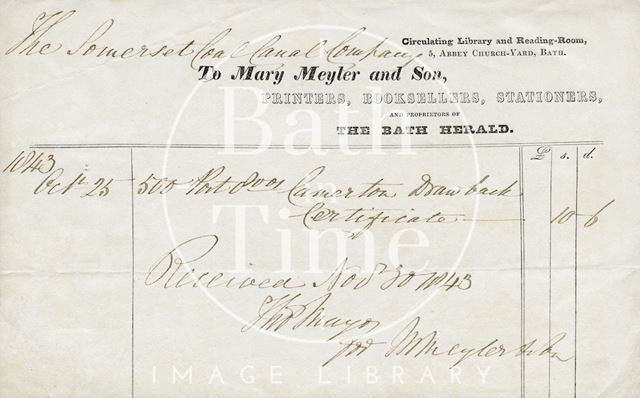 Circulating Library and Reading-Room,
The Somerset Coal Canal Company
5, Abbey Church-Yard, Bath.
To Mary Meyler and Son,
PRINTERS, BOOKSELLERS, STATIONERS,
AND PROPRIETORS OF
THE BATH HERALD.
£ s. d.
1843
Octr 25 500 Post 8vos Camerton Drawback
Certificate 10 6
Received Novr 30 1843
Thos Mayor
for M Meyler & Son
Bath in Time
IMAGE LIBRARY